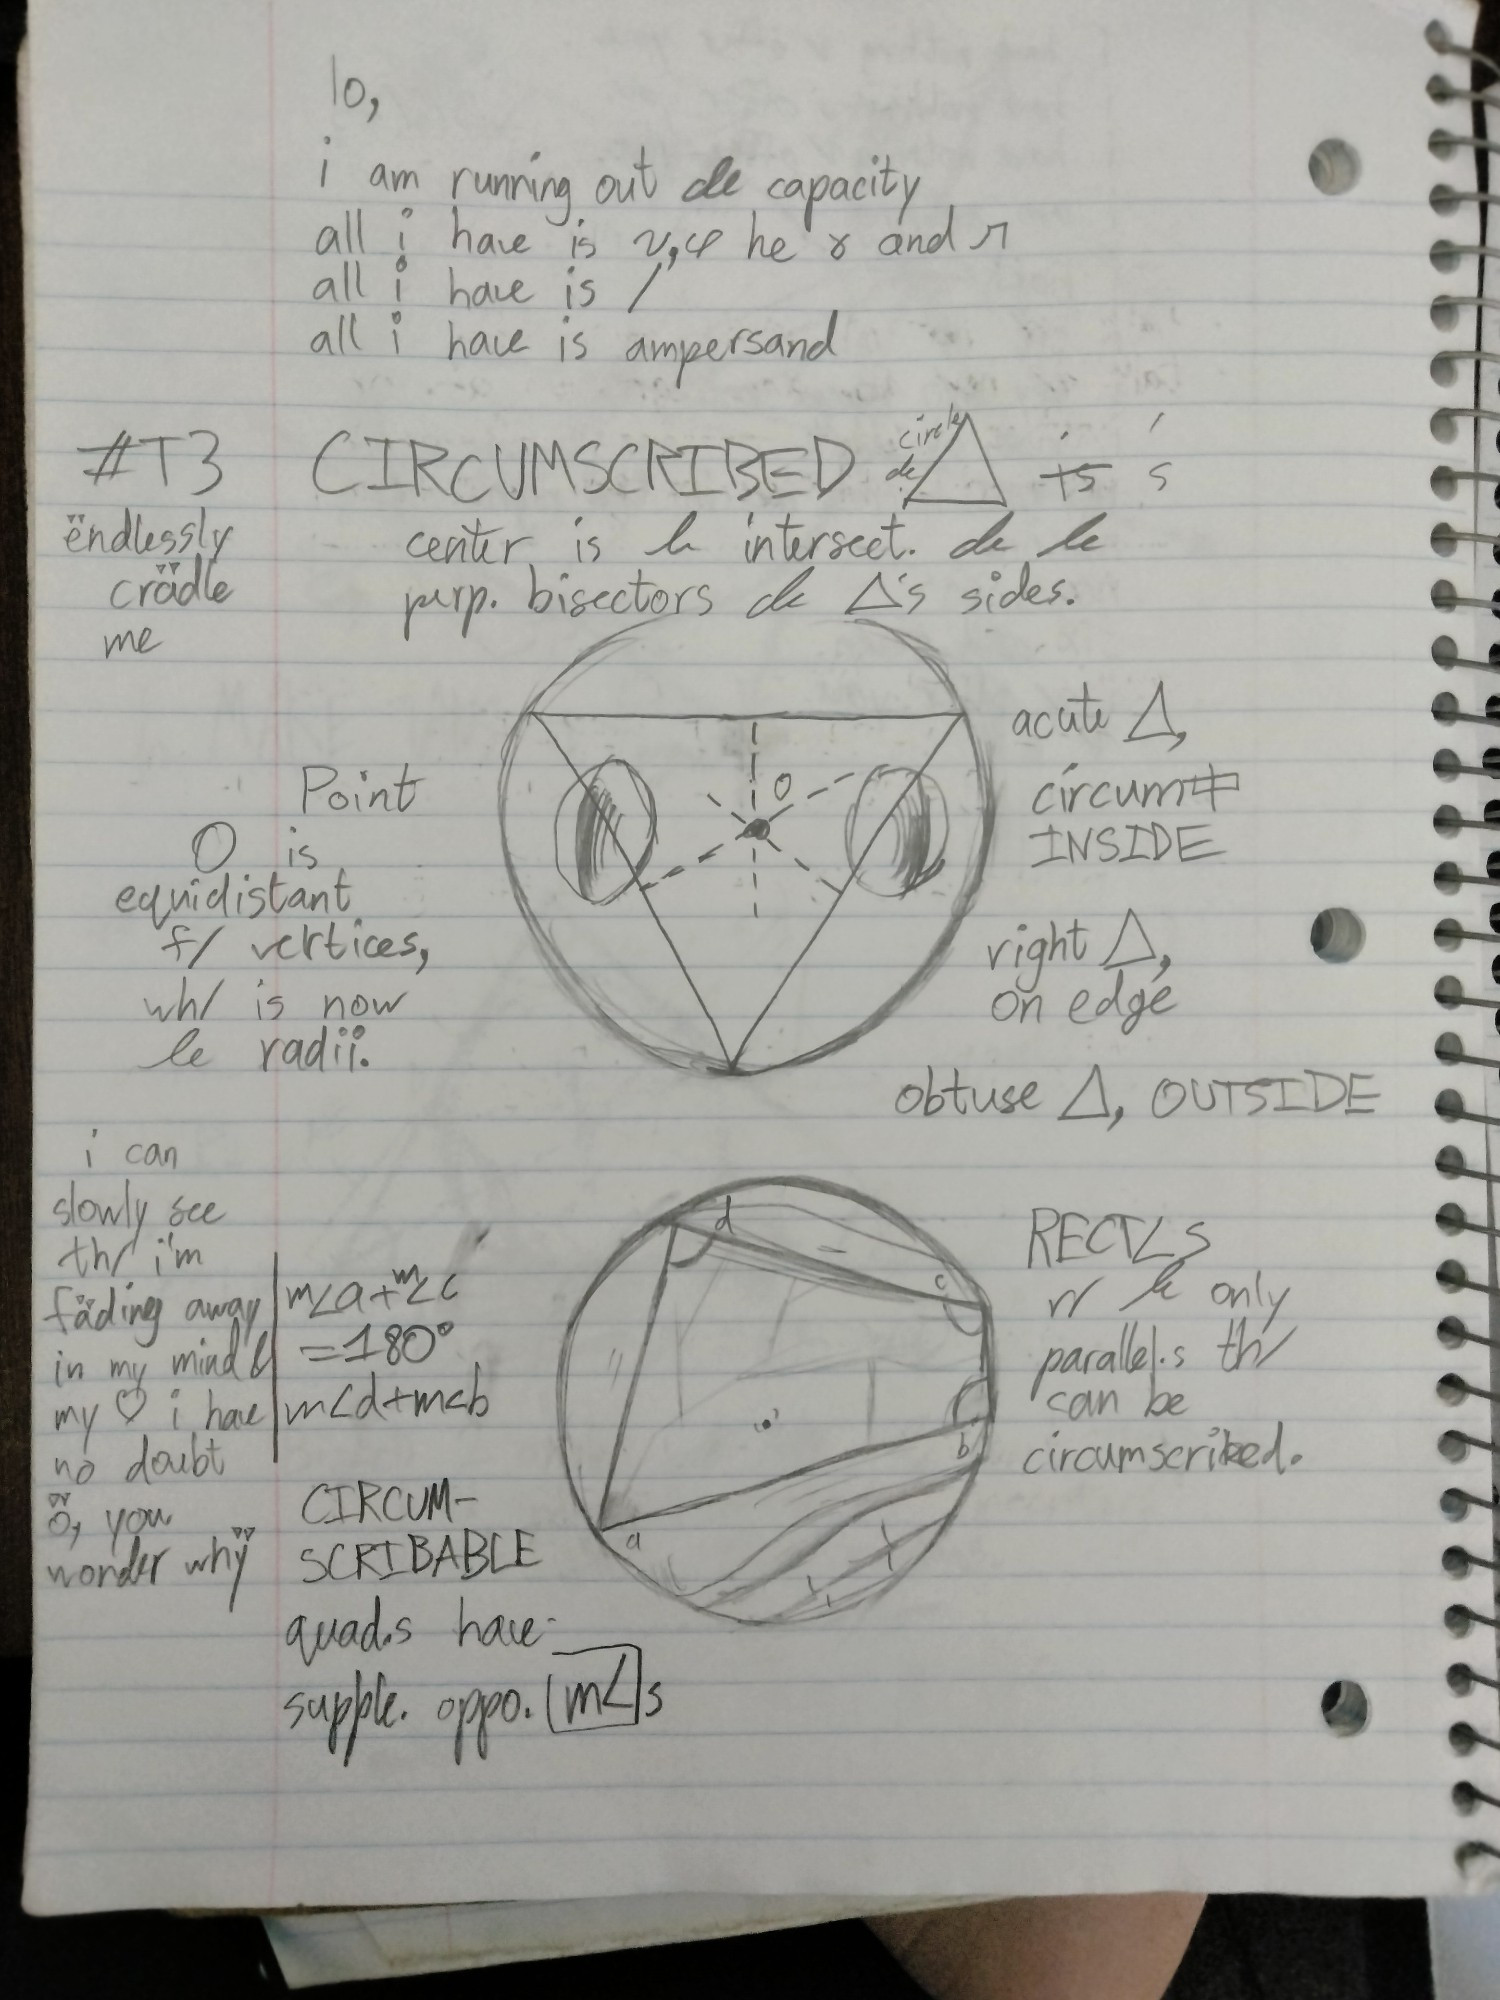 lo,
i am running out de capacity
all i have is v, φ he r and л
all i have is /
all i have is ampersand
#T3 CIRCUMSCRIBED circle de △ is 's
ëndlessly
crädle
me
center is le intersect. de le
perp. bisectors de △'s sides.
Point
O is
equidistant
f/ vertices,
wh/ is now
le radii.
O
acute △,
circum
INSIDE
right △,
on edge
obtuse △, OUTSIDE
i can
slowly see
th/ i'm
fäding away
in my mind &
my ♡ i have
no doubt
ö, you
wonder whÿ
m∠a+m∠c
=180°
m∠d+m∠b
CIRCUM-
SCRIBABLE
quad.s have
supple. oppo. m∠s
d
c
b
a
RECT∠S
r/ le only
parallel.s th/
can be
circumscribed.